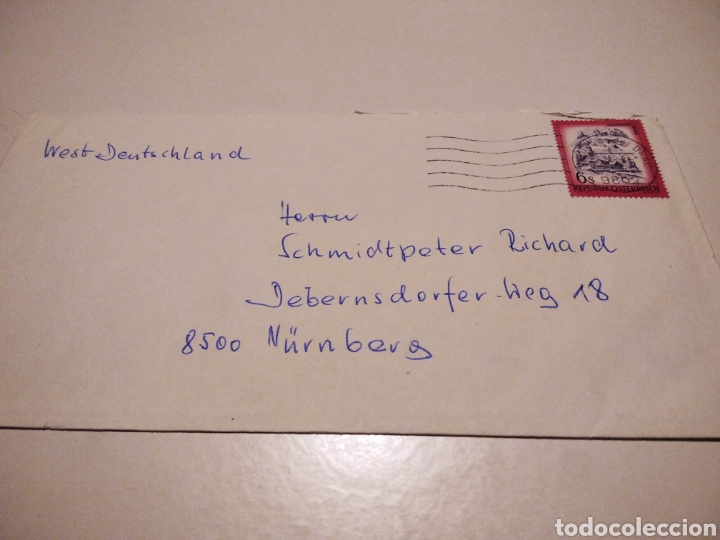 West-Deutschland
6s
REPUBLIK ÖSTERREICH
Herrn
Schmidtpeter Richard
Debernsdorfer-Weg 18
8500 Nürnberg
todocoleccion